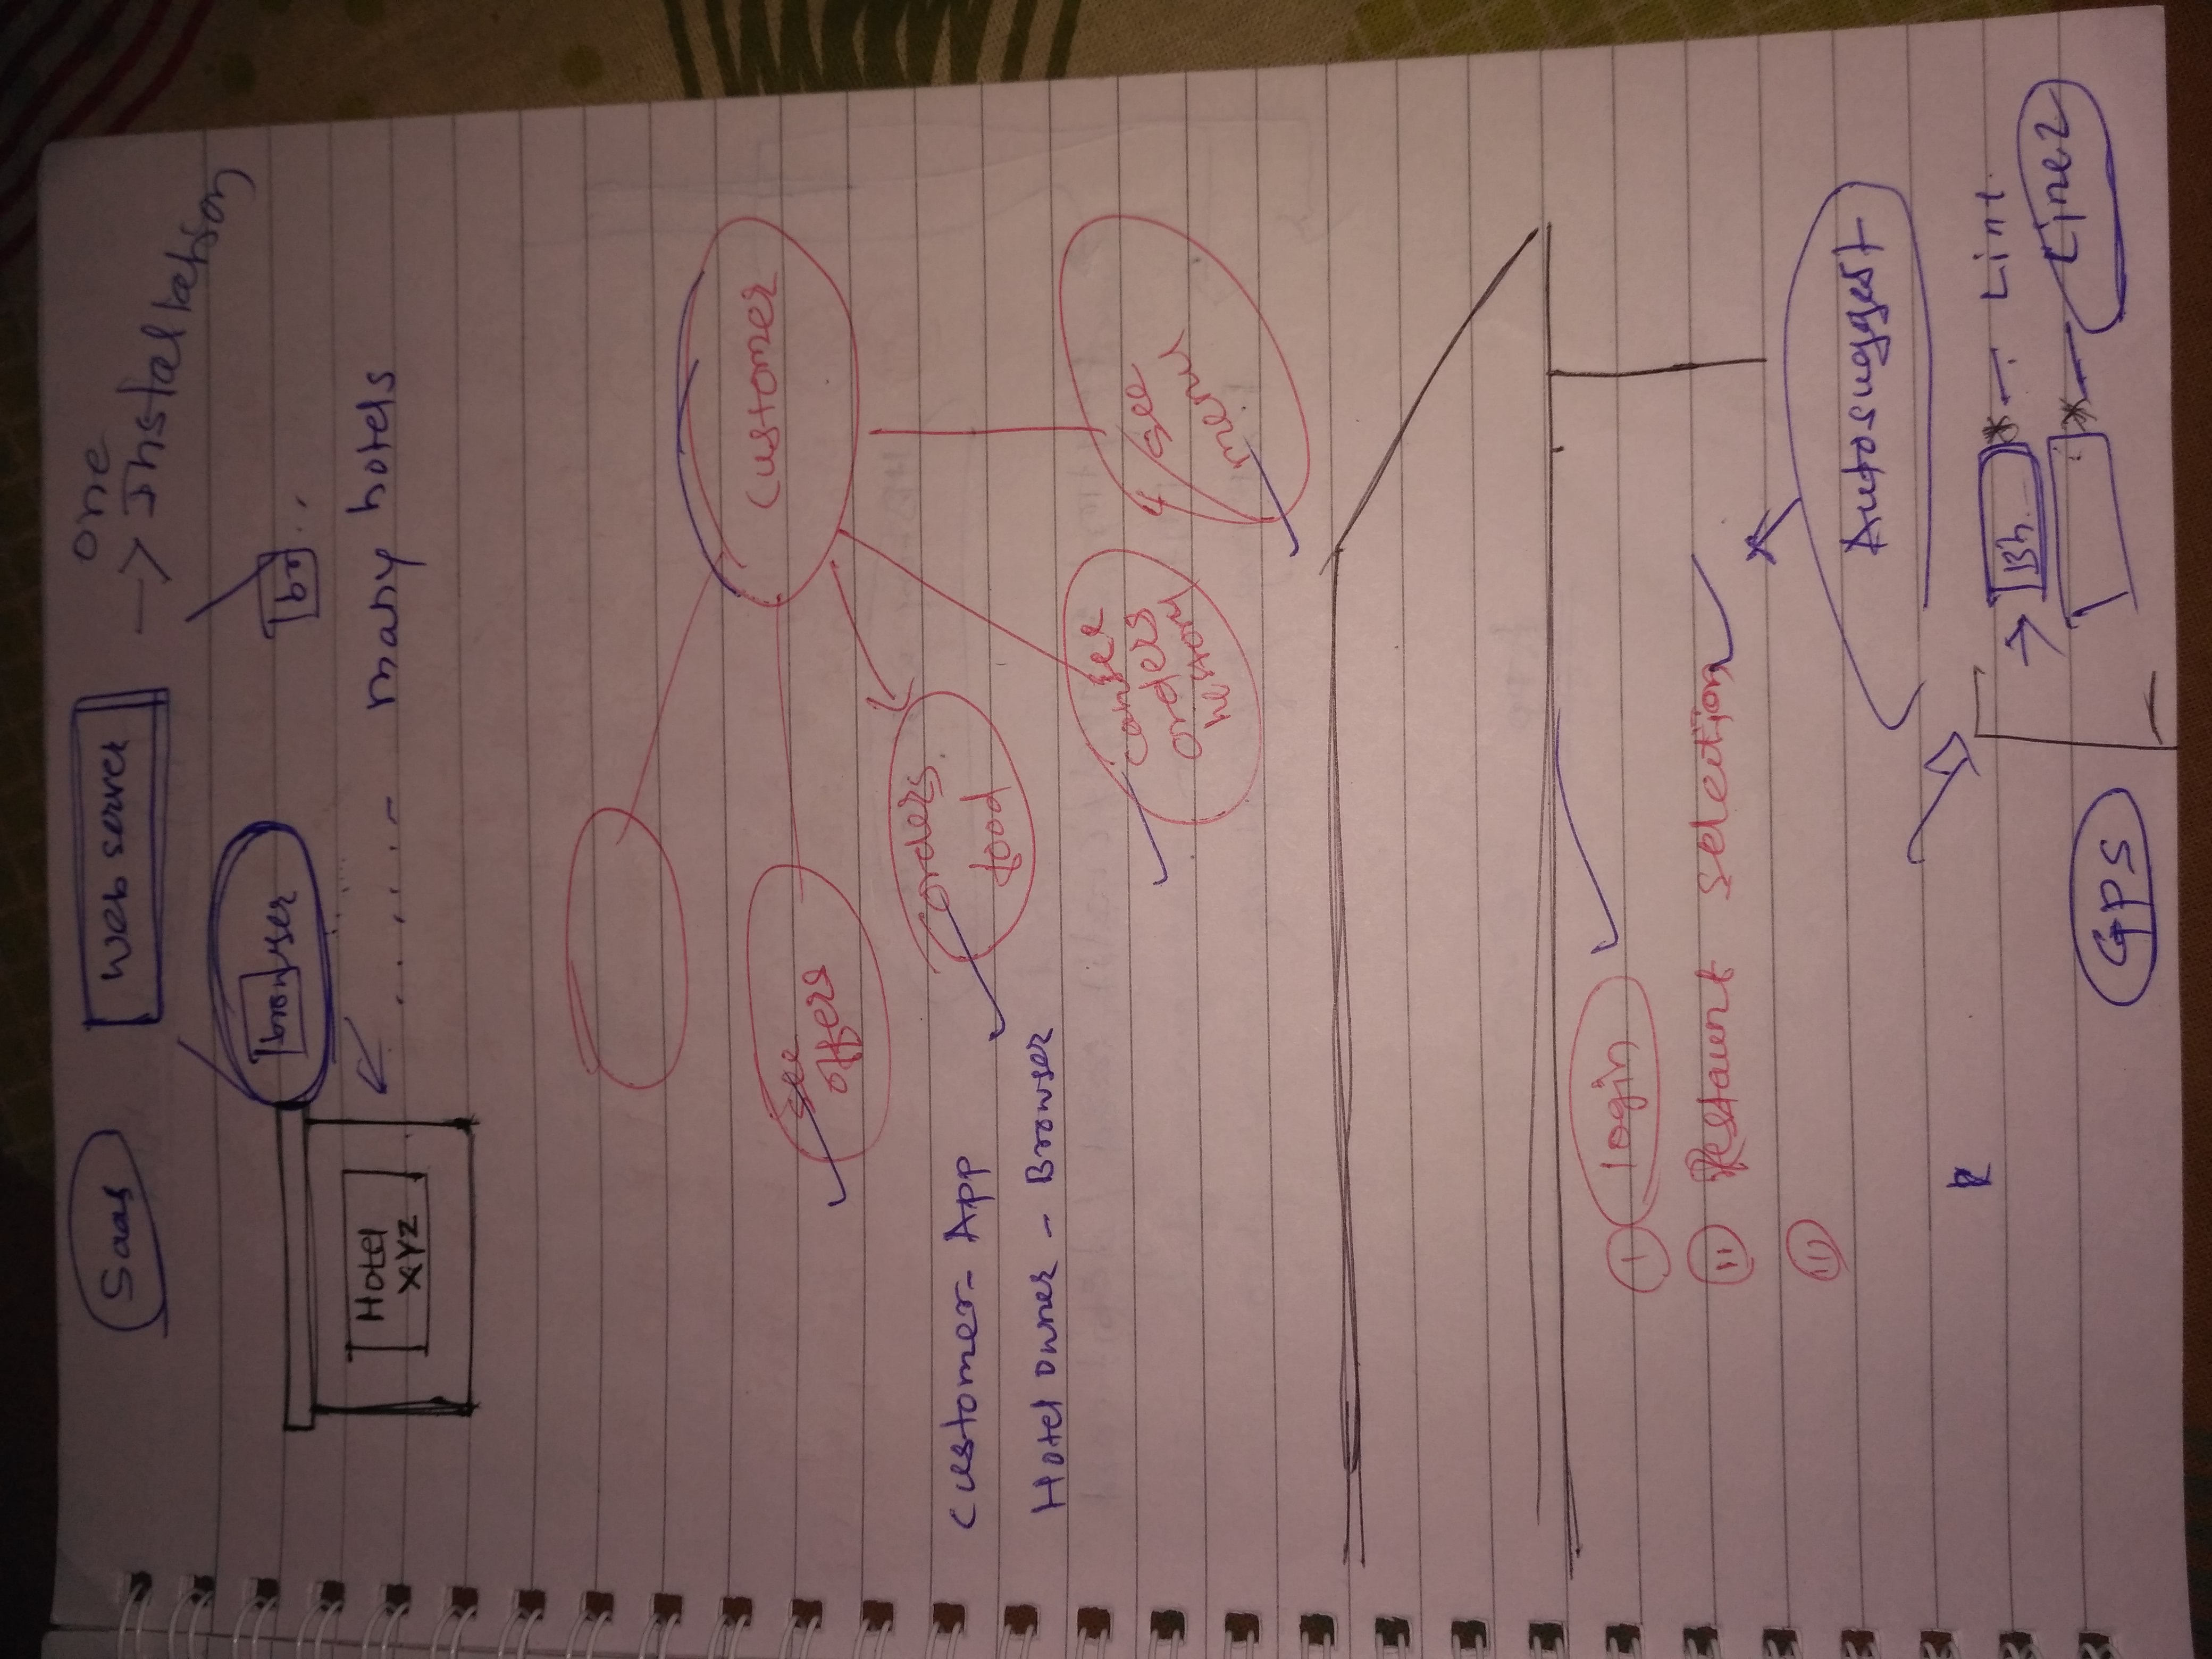 Saas
Web server
one
→ Installation
browser
br..
Hotel
XYZ
many hotels
customer
see
offers
orders
food
customer- App
Hotel owner - Browser
can see
orders
history
see
menu
I login
II Restaurnt selection
III
Autosuggest
Bh..
Line 2
GPS